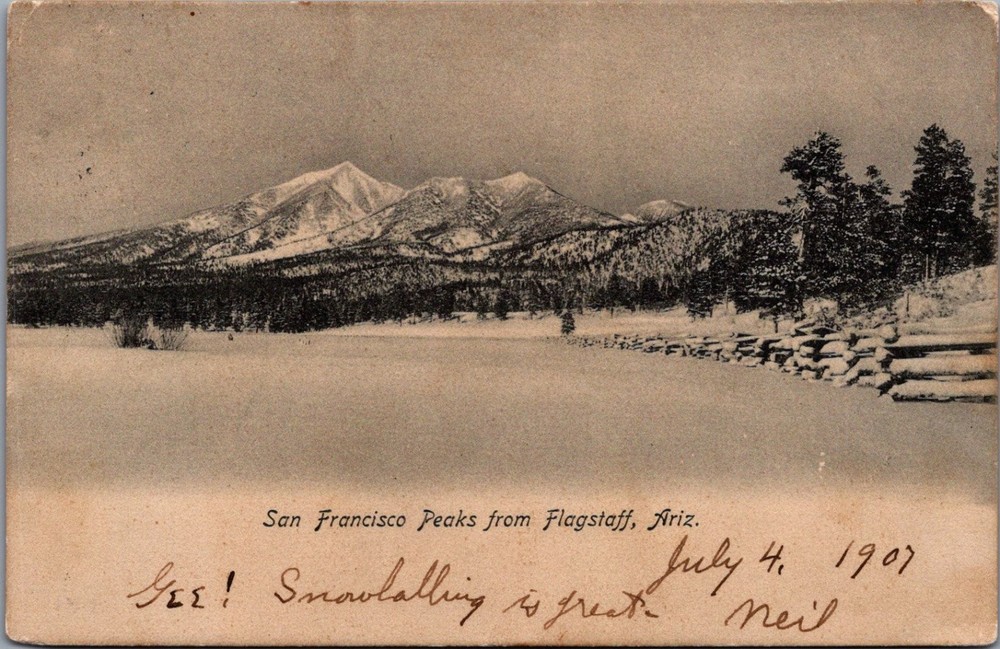 San Francisco Peaks from Flagstaff, Ariz.
July 4, 1907
Gee! Snowballing is great. Neil